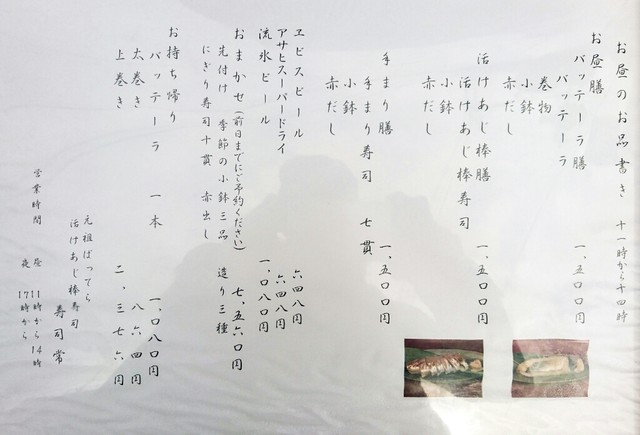 お昼のお品書き 十一時から十四時
お昼膳
バッテーラ膳 一、五〇〇円
バッテーラ
巻物
小鉢
赤だし
活けあじ棒膳 一、五〇〇円
活けあじ棒寿司
小鉢
赤だし
手まり膳 一、五〇〇円
手まり寿司 七貫
小鉢
赤だし
ヱビスビール 六四八円
アサヒスーパードライ 六四八円
流氷ビール 一、〇八〇円
おまかせ(前日までにご予約ください) 七、五六〇円
先付け 季節の小鉢三品 造り三種
にぎり寿司十貫 赤出し
お持ち帰り
バッテーラ 一本 一、〇八〇円
太巻き 八六四円
上巻き 二、三七六円
元祖ばってら
活けあじ棒寿司
寿司常
営業時間 昼 11時から14時
夜 17時から